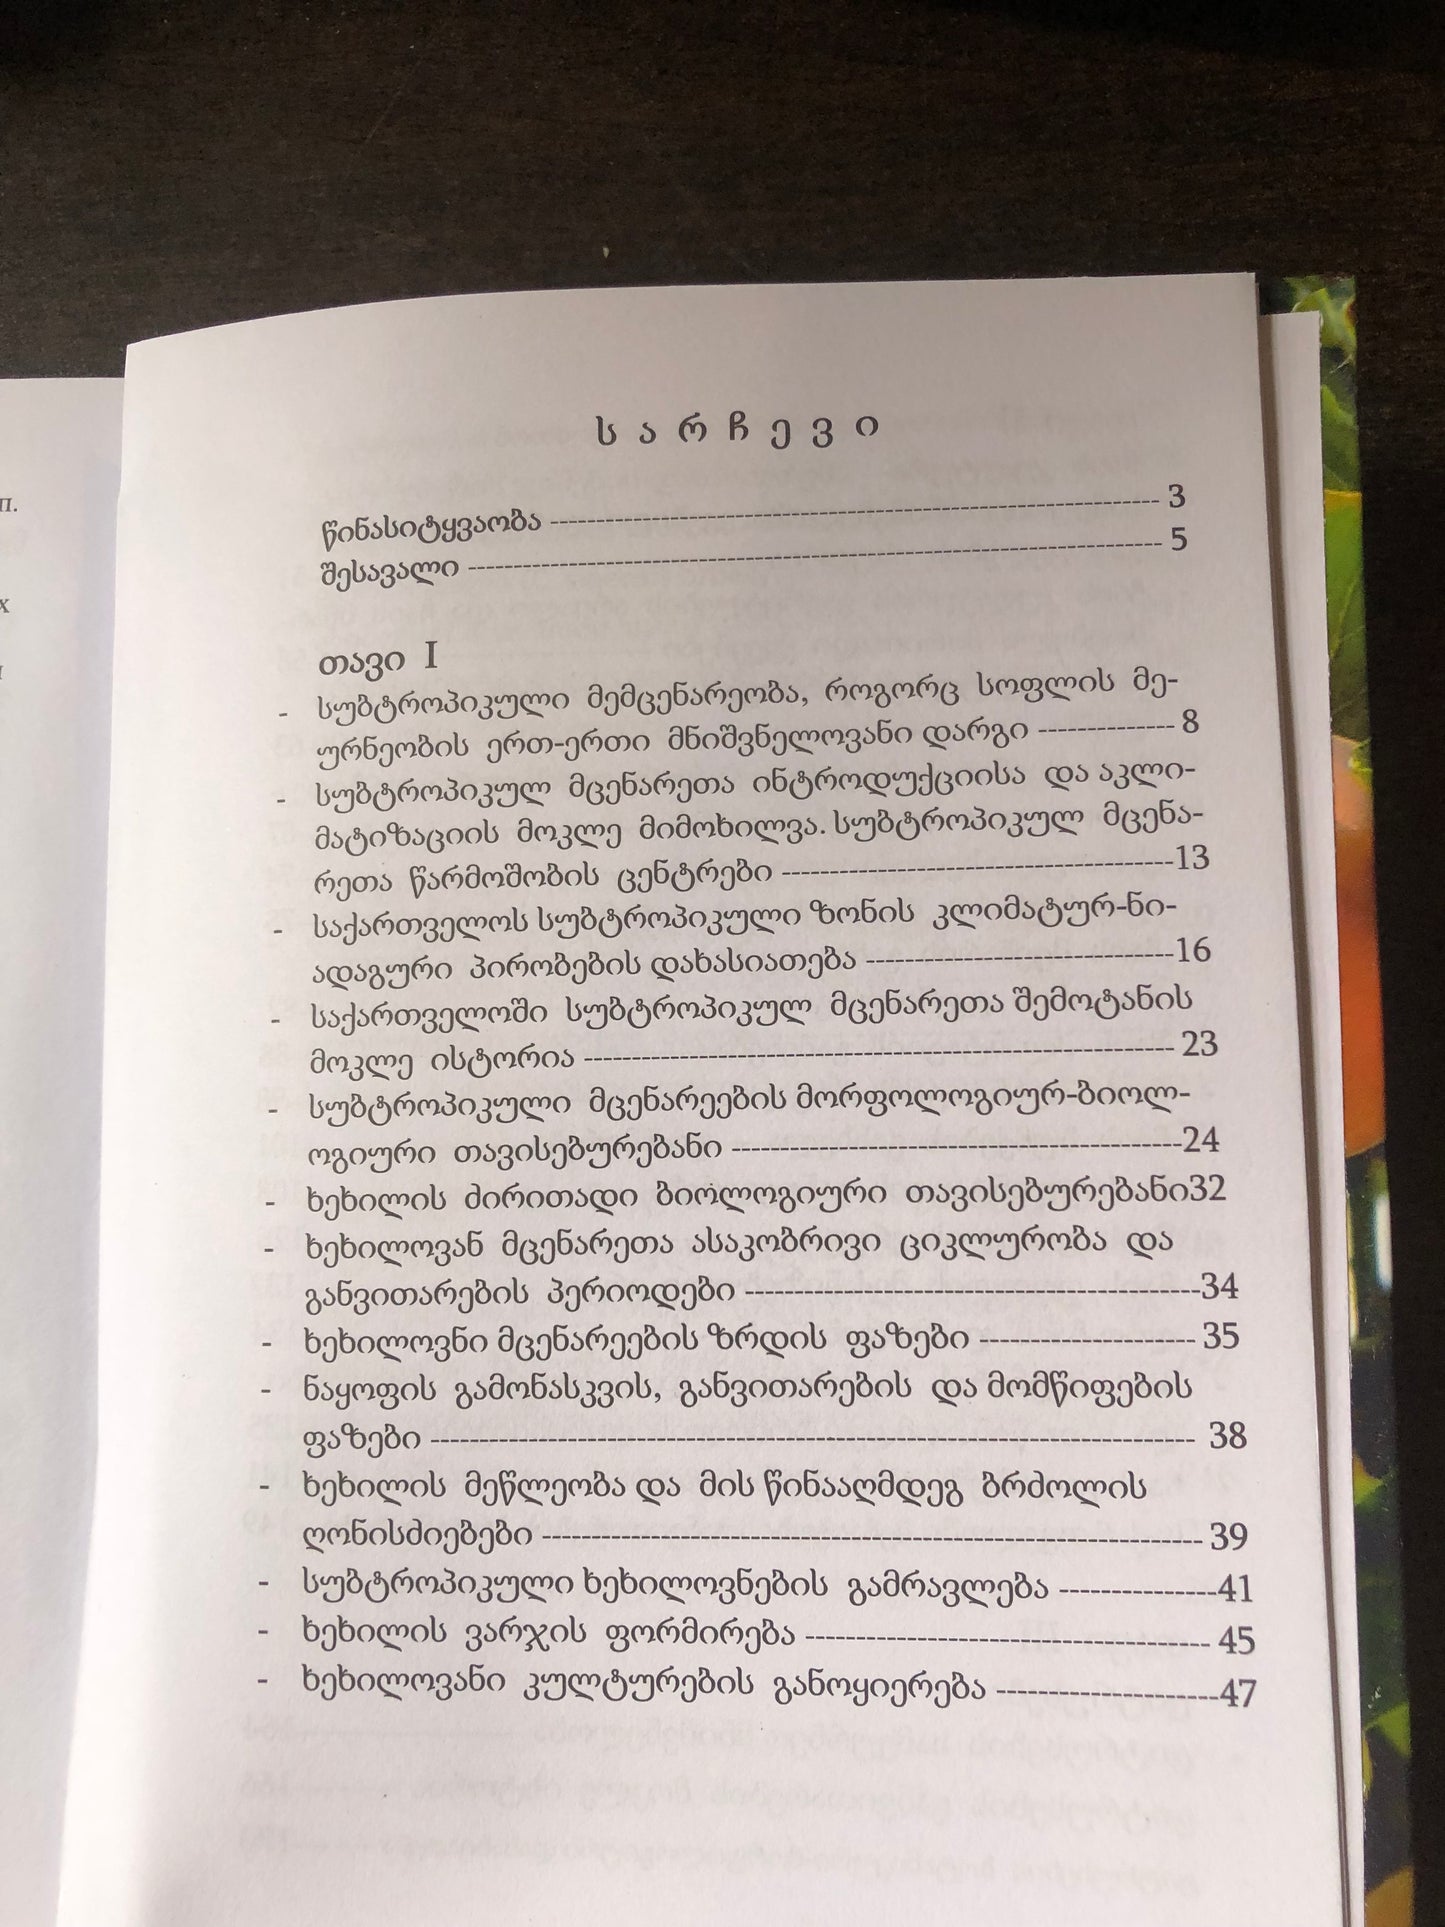 п.
х
სარჩევი
წინასიტყვაობა ---------- 3
შესავალი ---------- 5
თავი I
- სუბტროპიკული მემცენარეობა, როგორც სოფლის მე-
ურნეობის ერთ-ერთი მნიშვნელოვანი დარგი ---------- 8
- სუბტროპიკულ მცენარეთა ინტროდუქციისა და აკლი-
მატიზაციის მოკლე მიმოხილვა. სუბტროპიკულ მცენა-
რეთა წარმოშობის ცენტრები ----------13
- საქართველოს სუბტროპიკული ზონის კლიმატურ-ნი-
ადაგური პირობების დახასიათება ----------16
- საქართველოში სუბტროპიკულ მცენარეთა შემოტანის
მოკლე ისტორია ---------- 23
- სუბტროპიკული მცენარეების მორფოლოგიურ-ბიოლ-
ოგიური თავისებურებანი ----------24
- ხეხილის ძირითადი ბიოლოგიური თავისებურებანი32
- ხეხილოვან მცენარეთა ასაკობრივი ციკლურობა და
განვითარების პერიოდები ----------34
- ხეხილოვნი მცენარეების ზრდის ფაზები ---------- 35
- ნაყოფის გამონასკვის, განვითარების და მომწიფების
ფაზები ---------- 38
- ხეხილის მეწლეობა და მის წინააღმდეგ ბრძოლის
ღონისძიებები ---------- 39
- სუბტროპიკული ხეხილოვნების გამრავლება ----------41
- ხეხილის ვარჯის ფორმირება ---------- 45
- ხეხილოვანი კულტურების განოყიერება ----------47